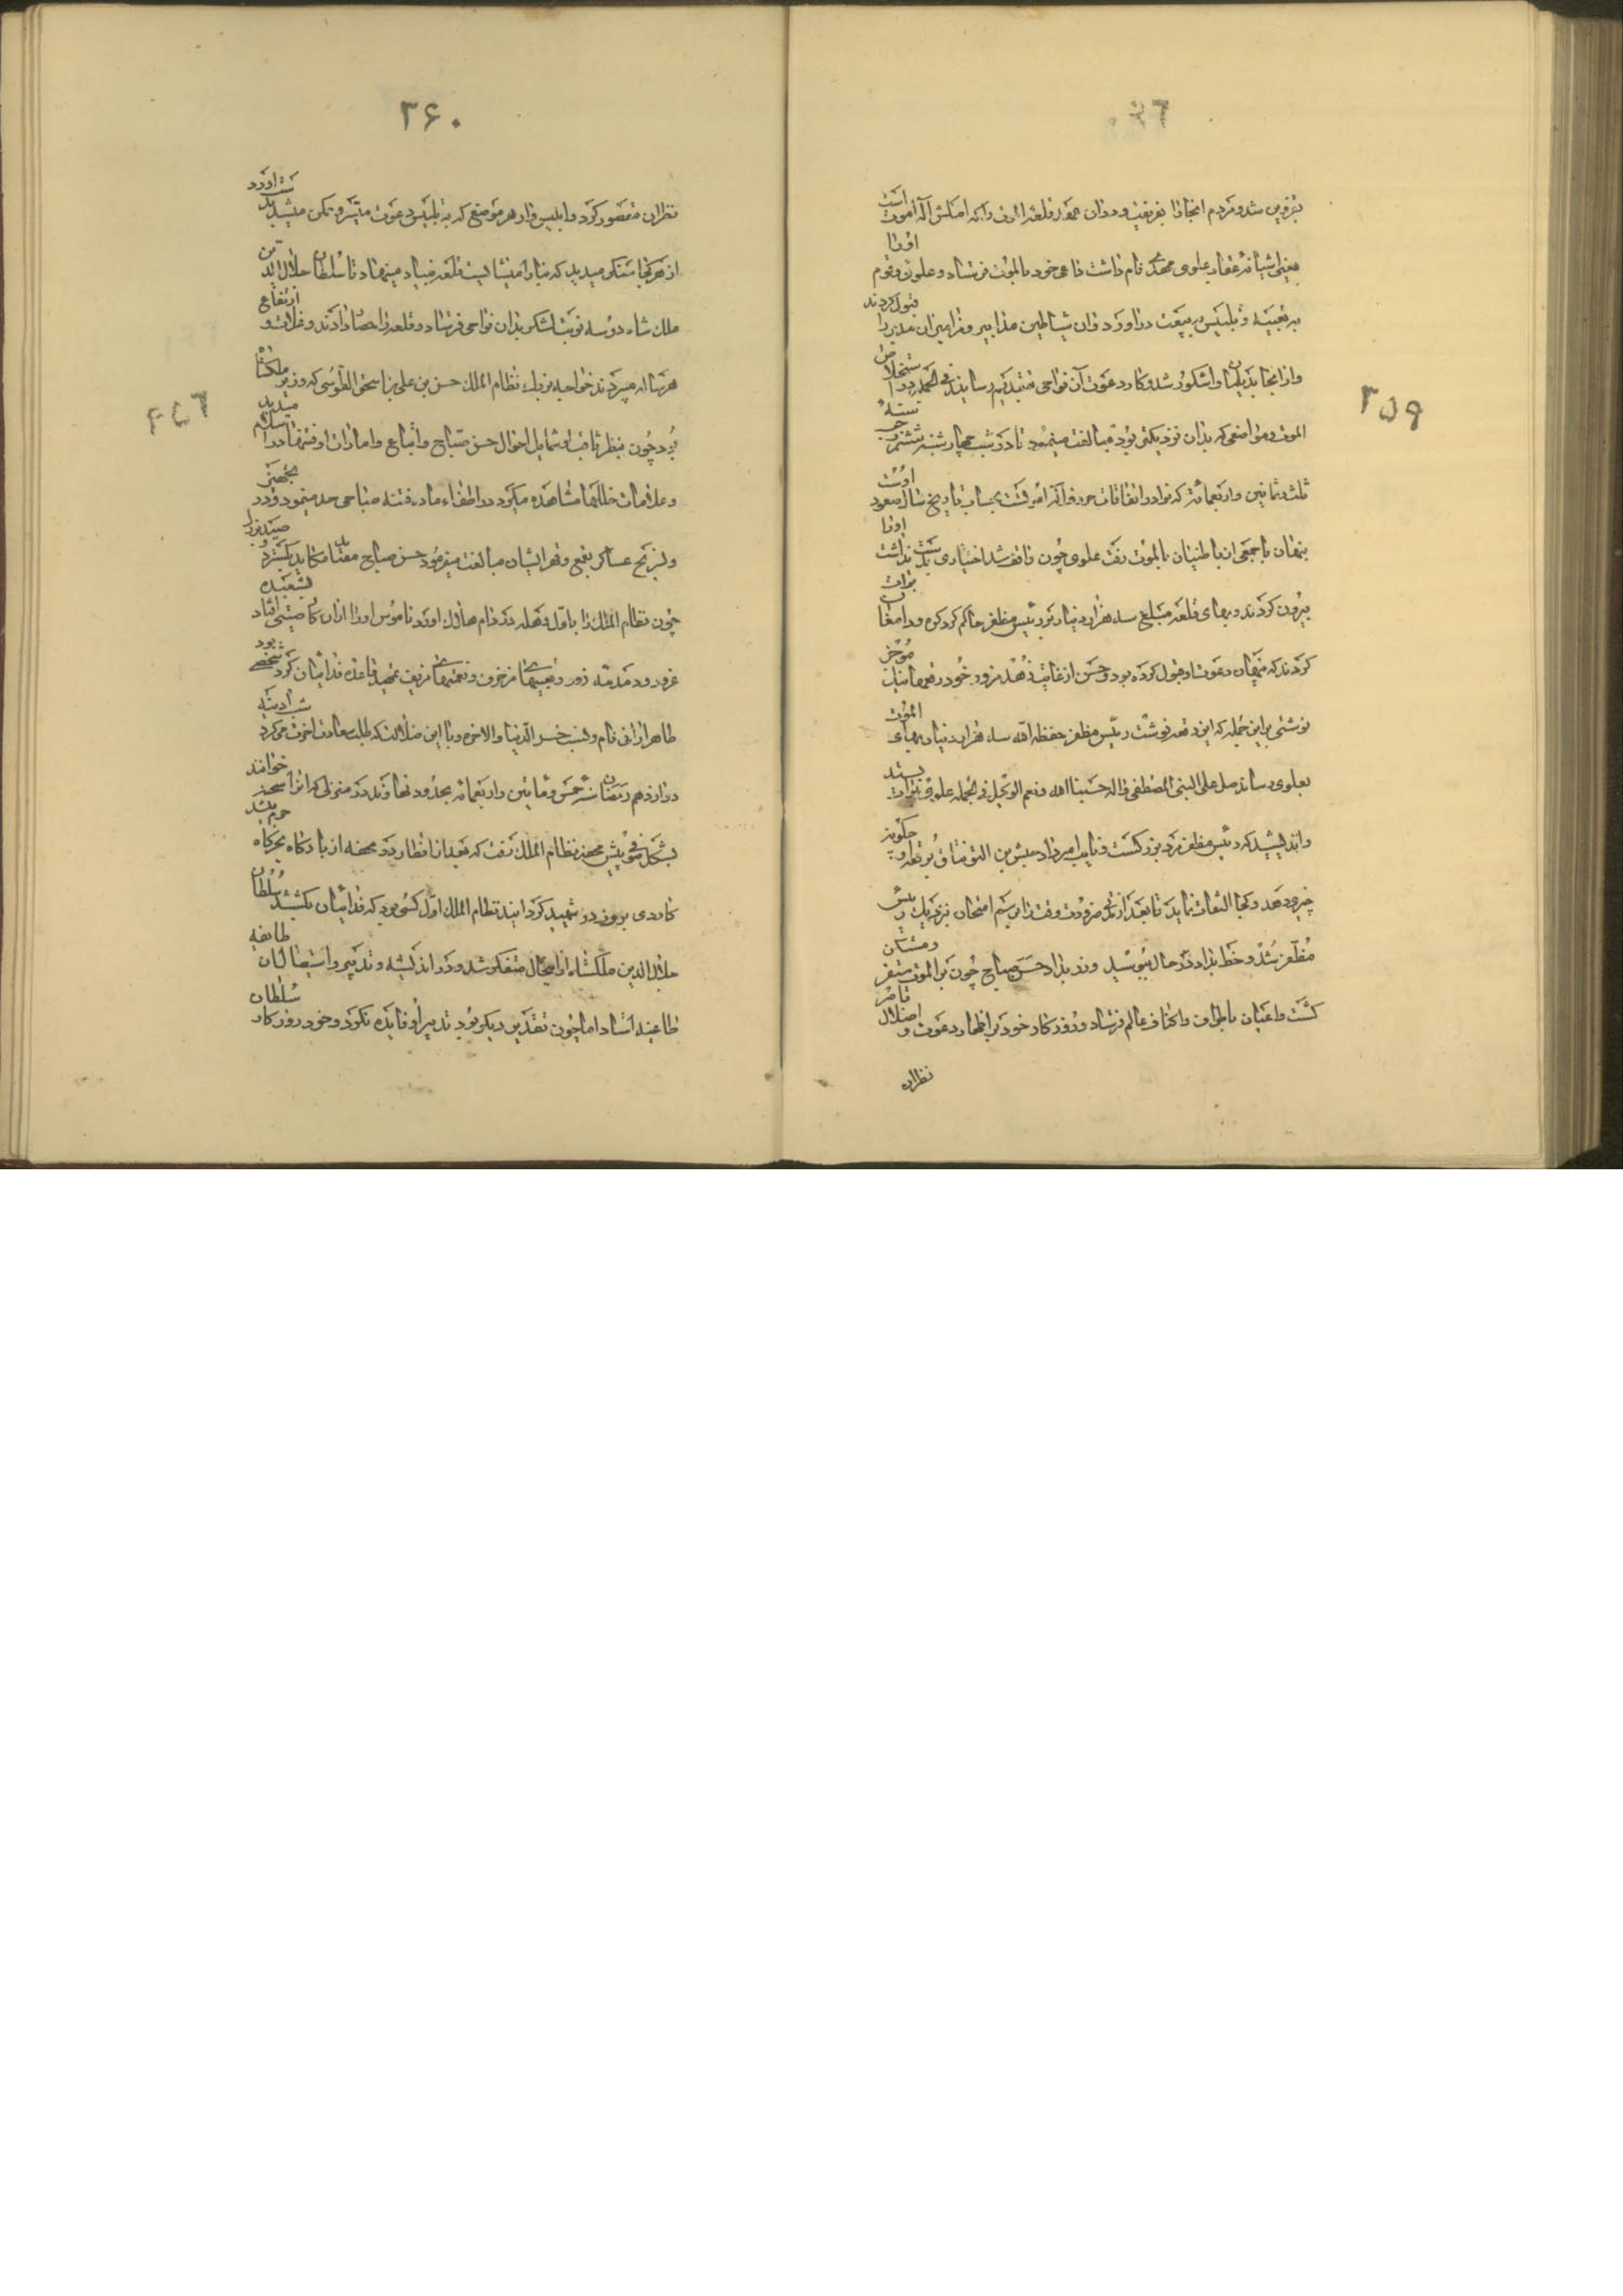 ۲۵۹
بقزوین شد و مردم انجا را بفریفت و دران عهد قلعه الموت را که اصلش اله اموت است
یعنی اشیانه عقاب علوی مهدی نام داشت داعی خود بالموت فرستاد و علوی و قوم او را
به تعبیه و تلبیس به بیعت دراورد وان شیاطین قبول کردند
وازانجا بدیلمان واشکور شد و کار دعوت آن نواحی رسانید فی الجمله در استخلاص
الموت و مواضعی که بدان نزدیکی بود مبالغت مینمود تا در شب چهارشنبه ششم رجب سنه
ثلث و ثمانین واربعمائه که از نوادر اتفاقات حروف اله اموت بحساب تاریخ سال صعود اوست
پنهان با جمعی از باطنیان بالموت رفت علوی چون واقف شد اختیاری بدست نداشت او را
بیرون کردند و بهای قلعه مبلغ سه هزار دینار بر رئیس مظفر حاکم کردکوه و دامغان برات
کردند که پنهان دعوت او قبول کرده بود و حسن از غایت زهد مزور خود رقعها موجز
نوشتی براین جمله که این رقعه نوشت رئیس مظفر حفظه الله سه هزار دینار بهای الموت
بعلوی رساند صل علی النبی المصطفی واله حسبنا الله و نعم الوکیل فی الجمله علوی برات بستد
واندیشید که رئیس مظفر مردی بزرکست و نایب امیرداد حبشی بن التونتاق برقعه او چکونه
چیزی دهد و کجا التفات نماید تا بعد از ضرورت وقت را برسم امتحان نزدیک رئیس
مظفر شد و خط بداد در حال ببوسید و زر بداد حسن صباح چون بر الموت متمکن
کشت داعیان باطراف و اکناف عالم فرستاد و روزکار خود بر اظهار دعوت و اضلال قاصر
نظران
۲۶۰
نظران مقصور کرد و ابلیس وار هر موضع که به تلبیس دعوت میسر و ممکن میشد بدست اورد
از هر کجا سنکی میدید که بنا را میشایست قلعه بنیاد مینهاد تا سلطان جلال الدین
ملک شاه دو سه نوبت لشکر بدان نواحی فرستاد و قلعه را حصار دادند و غلات و ارتفاع
هر ساله میبردند خواجه بزرک نظام الملک حسن بن علی بن اسحق الطوسی که وزیر ملکشاه
بود چون بنظر ثاقب شمایل احوال حسن صباح و اتباع وامارات او فتنها در اسلام میدید
وعلامات خللها مشاهده میکرد در اطفاء ماده فتنه صباحی جد مینمود و در تجهیز
ولیزنج عساکر بقمع و قهر ایشان مبالغت میفرمود حسن صباح مصاید مکاید بکسترد و صیدی را
چون نظام الملک را باول وهله در دام هلاک اورد ناموس او را ازان کار صیتی افتاد بشعبده
غرور و دمدمه زور و تعبیهای مزخرف و تعمیهای مزیف تمهید قاعده فدائیان کرد شخصی بود
طاهر ارانی نام و نسب خسر الدنیا والاخره و با این ضلالت که طلب سعادت اخرت میکرد شب ادینه
دوازدهم رمضان سنه خمس و ثمانین واربعمائه بحدود نهاوند در منزلی که انرا سحنه خوانند
بشکل صوفی پیش محفه نظام الملک رفت که بعد از افطار در محفه از بارکاه بخرکاه حرم میشد
کاردی برو زد و شهید کردانید نظام الملک اول کسی بود که فدائیان بکشتند سلطان
جلال الدین ملکشاه ازانحال متفکر شد و در اندیشه و تدبیر استیصال ان طایفه
طاعینه افتاد اما چون تقدیر دیکر بود تدبیر او فایده نکرد و خود روزکار سلطان